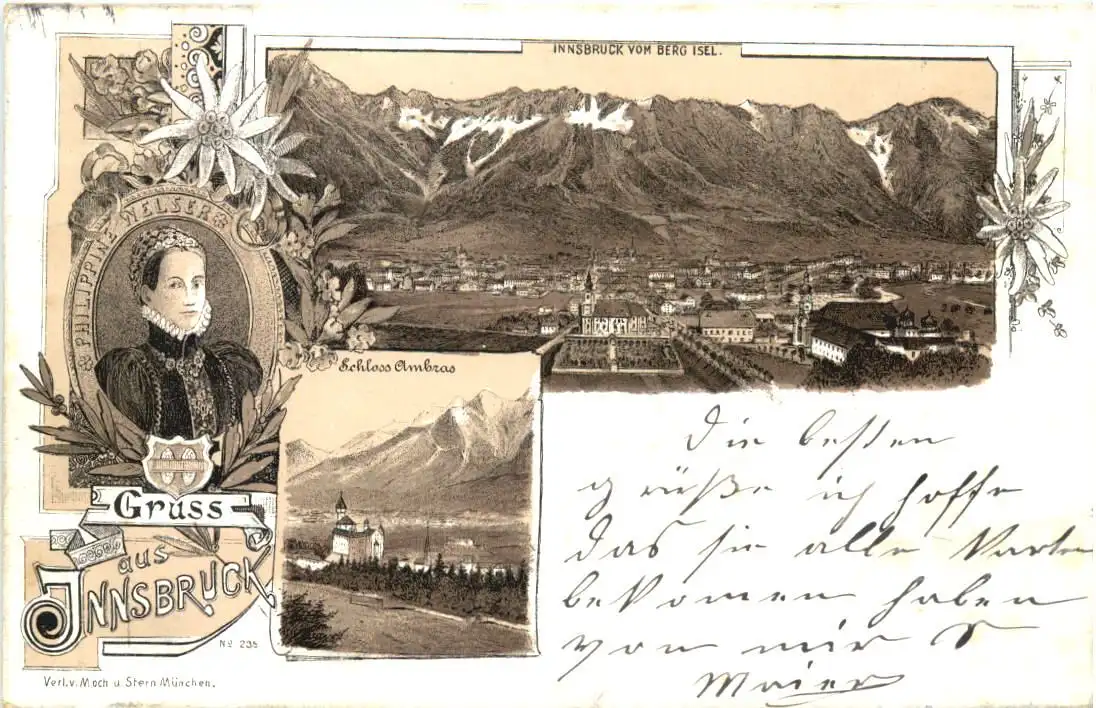 INNSBRUCK VOM BERG ISEL.
PHILIPPINE WELSER
Schloss Ambras
Gruss
aus
INNSBRUCK
No 235
Verl. v. Moch u Stern München.
Die besten
grüße ich hoffe
das sie alle Karten
bekomen haben
von mir
Maier